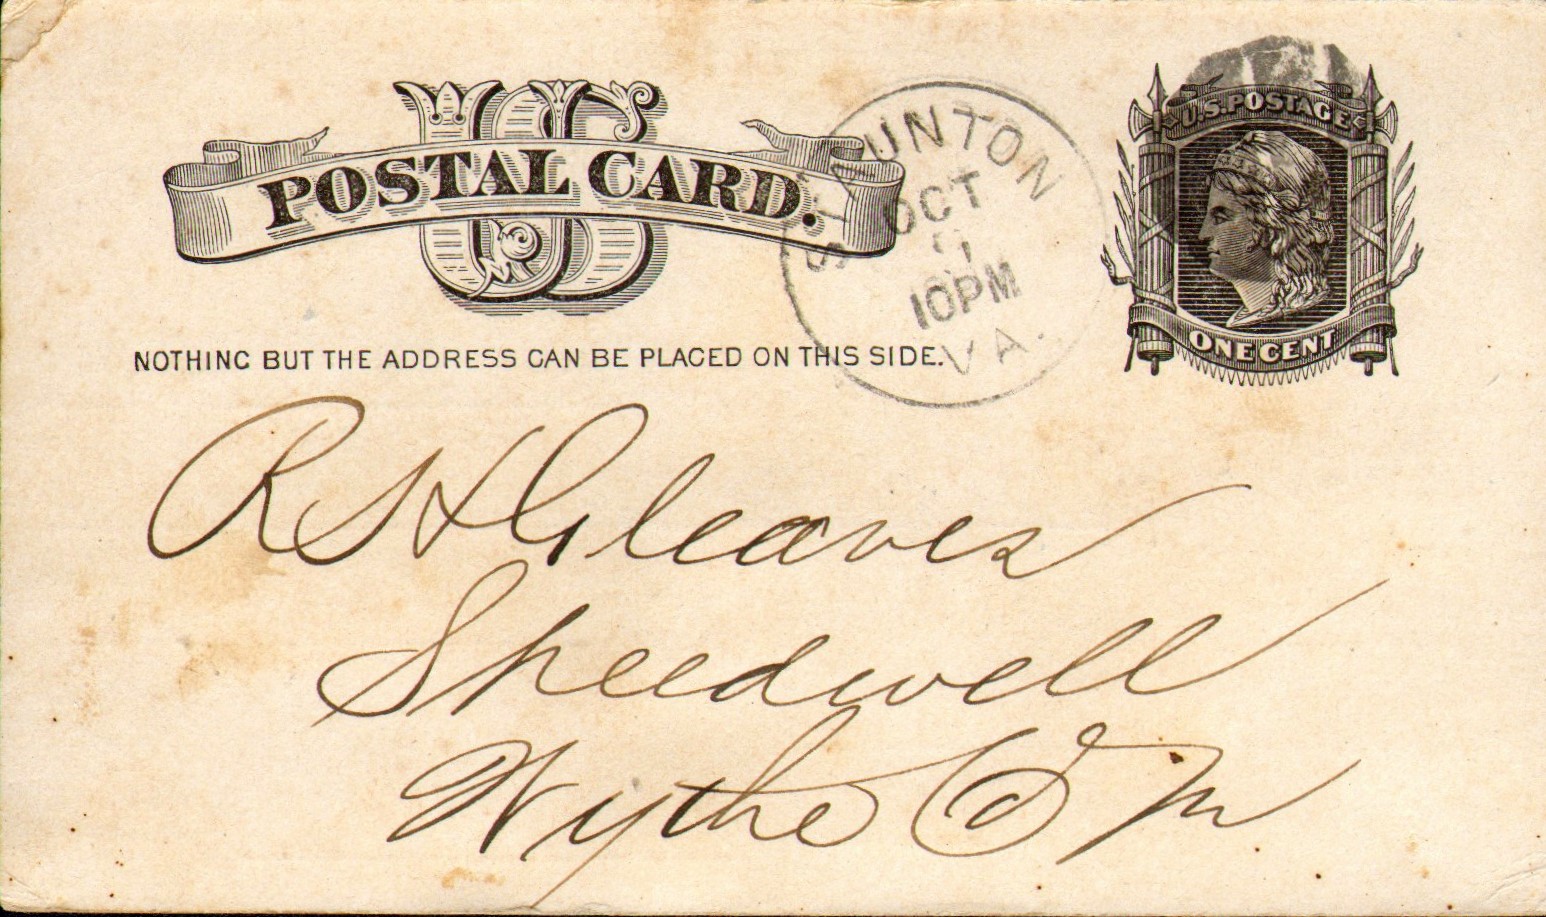 US
POSTAL CARD.
NOTHING BUT THE ADDRESS CAN BE PLACED ON THIS SIDE.
STAUNTON
OCT
10PM
VA.
U.S. POSTAGE
ONE CENT
Gleaves
Speedwell
Wythe Co